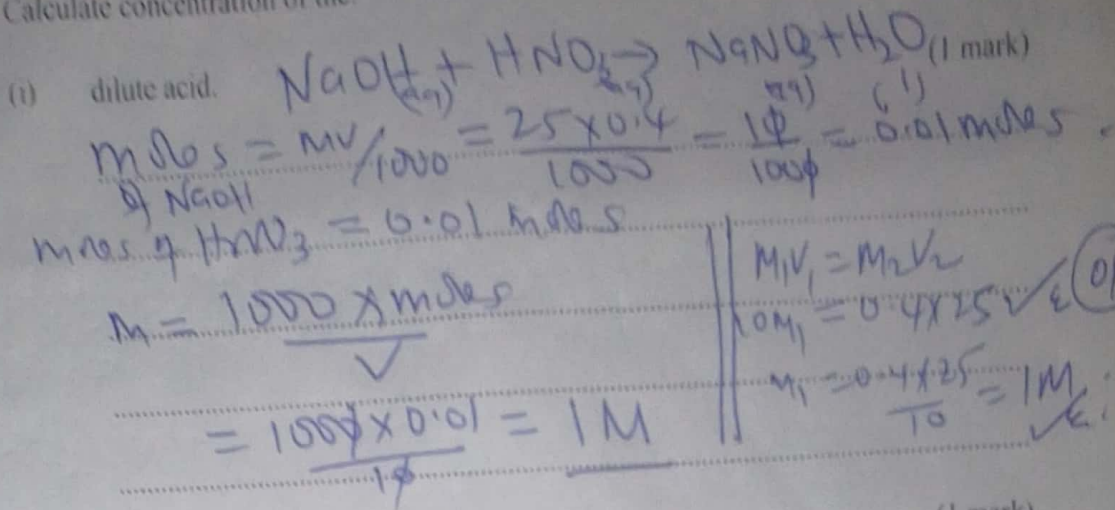 Calculate concentration of the
NaOH(aq) + HNO3(aq) → NaNO3(aq) + H2O(l) (1 mark)
(i) dilute acid.
moles of NaOH = MV/1000 = 25x0.4/1000 = 10/1000 = 0.01 moles.
moles of HNO3 = 0.01 moles
M = 1000 x moles/V
= 1000 x 0.01/10 = 1M
M1V1 = M2V2
10M1 = 0.4x25
M1 = 0.4x25/10 = 1M